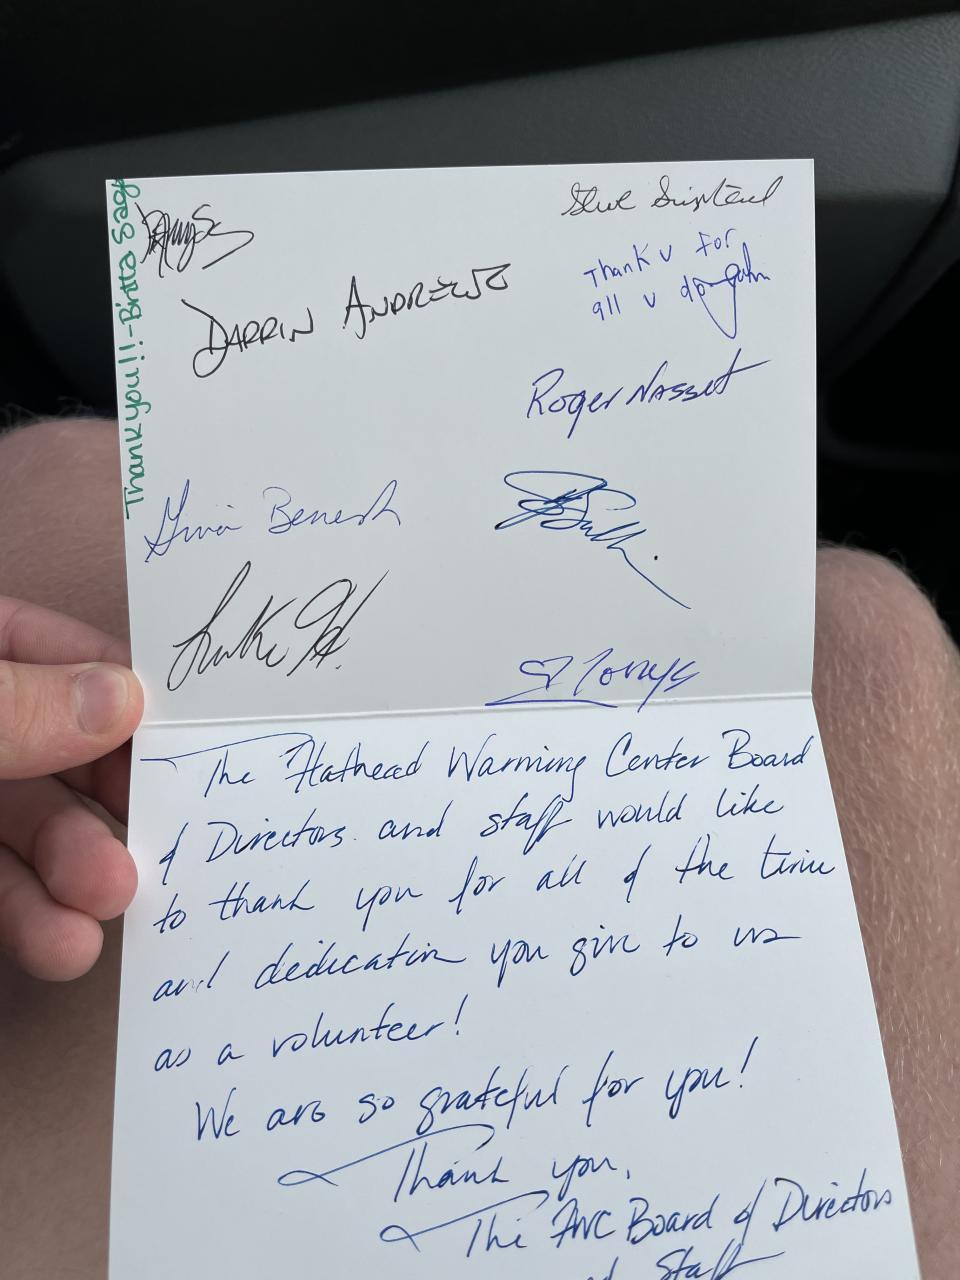 Thank you!! - Britta Sage
DARRIN ANDREWS
Thank u For
all u do
Roger Nasset
Benesh
Luke H.
The Flathead Warming Center Board
of Directors and staff would like
to thank you for all of the time
and dedication you give to us
as a volunteer!
We are so grateful for you!
Thank you,
The FWC Board of Directors
Staff